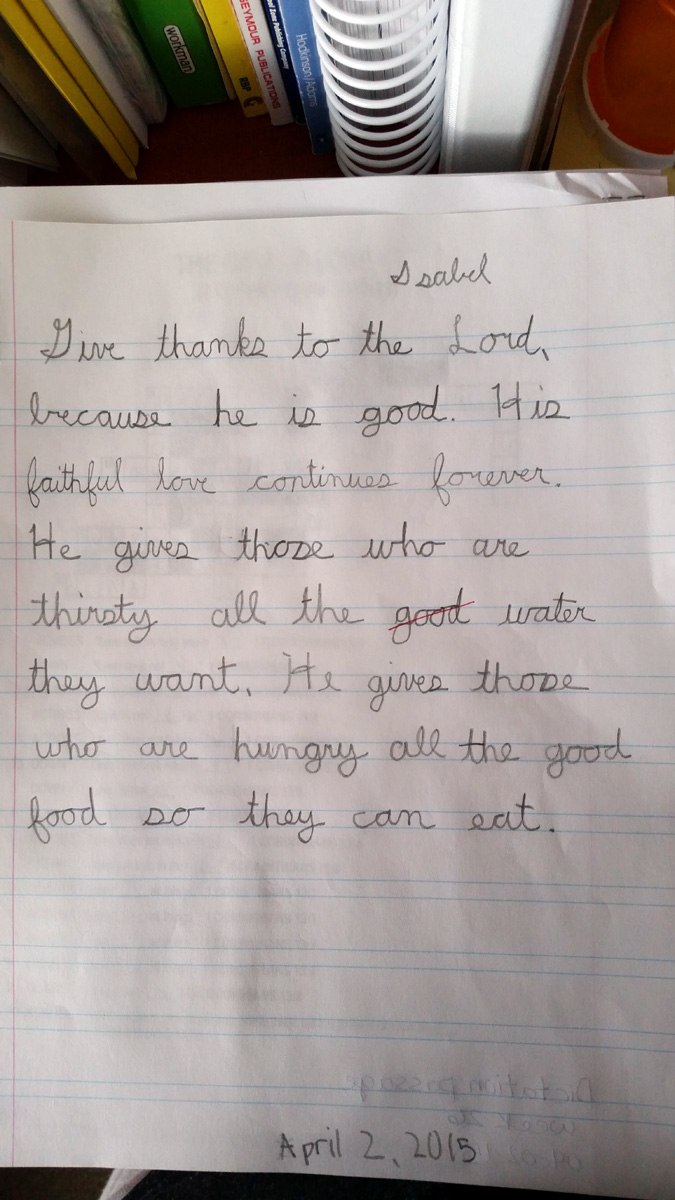 workman
SEYMOUR PUBLICATIONS
RBP
Hodkinson/Adams
Isabel
Give thanks to the Lord,
because he is good. His
faithful love continues forever.
He gives those who are
thirsty all the good water
they want. He gives those
who are hungry all the good
food so they can eat.
Dictation passage
week 26
April 2, 2015